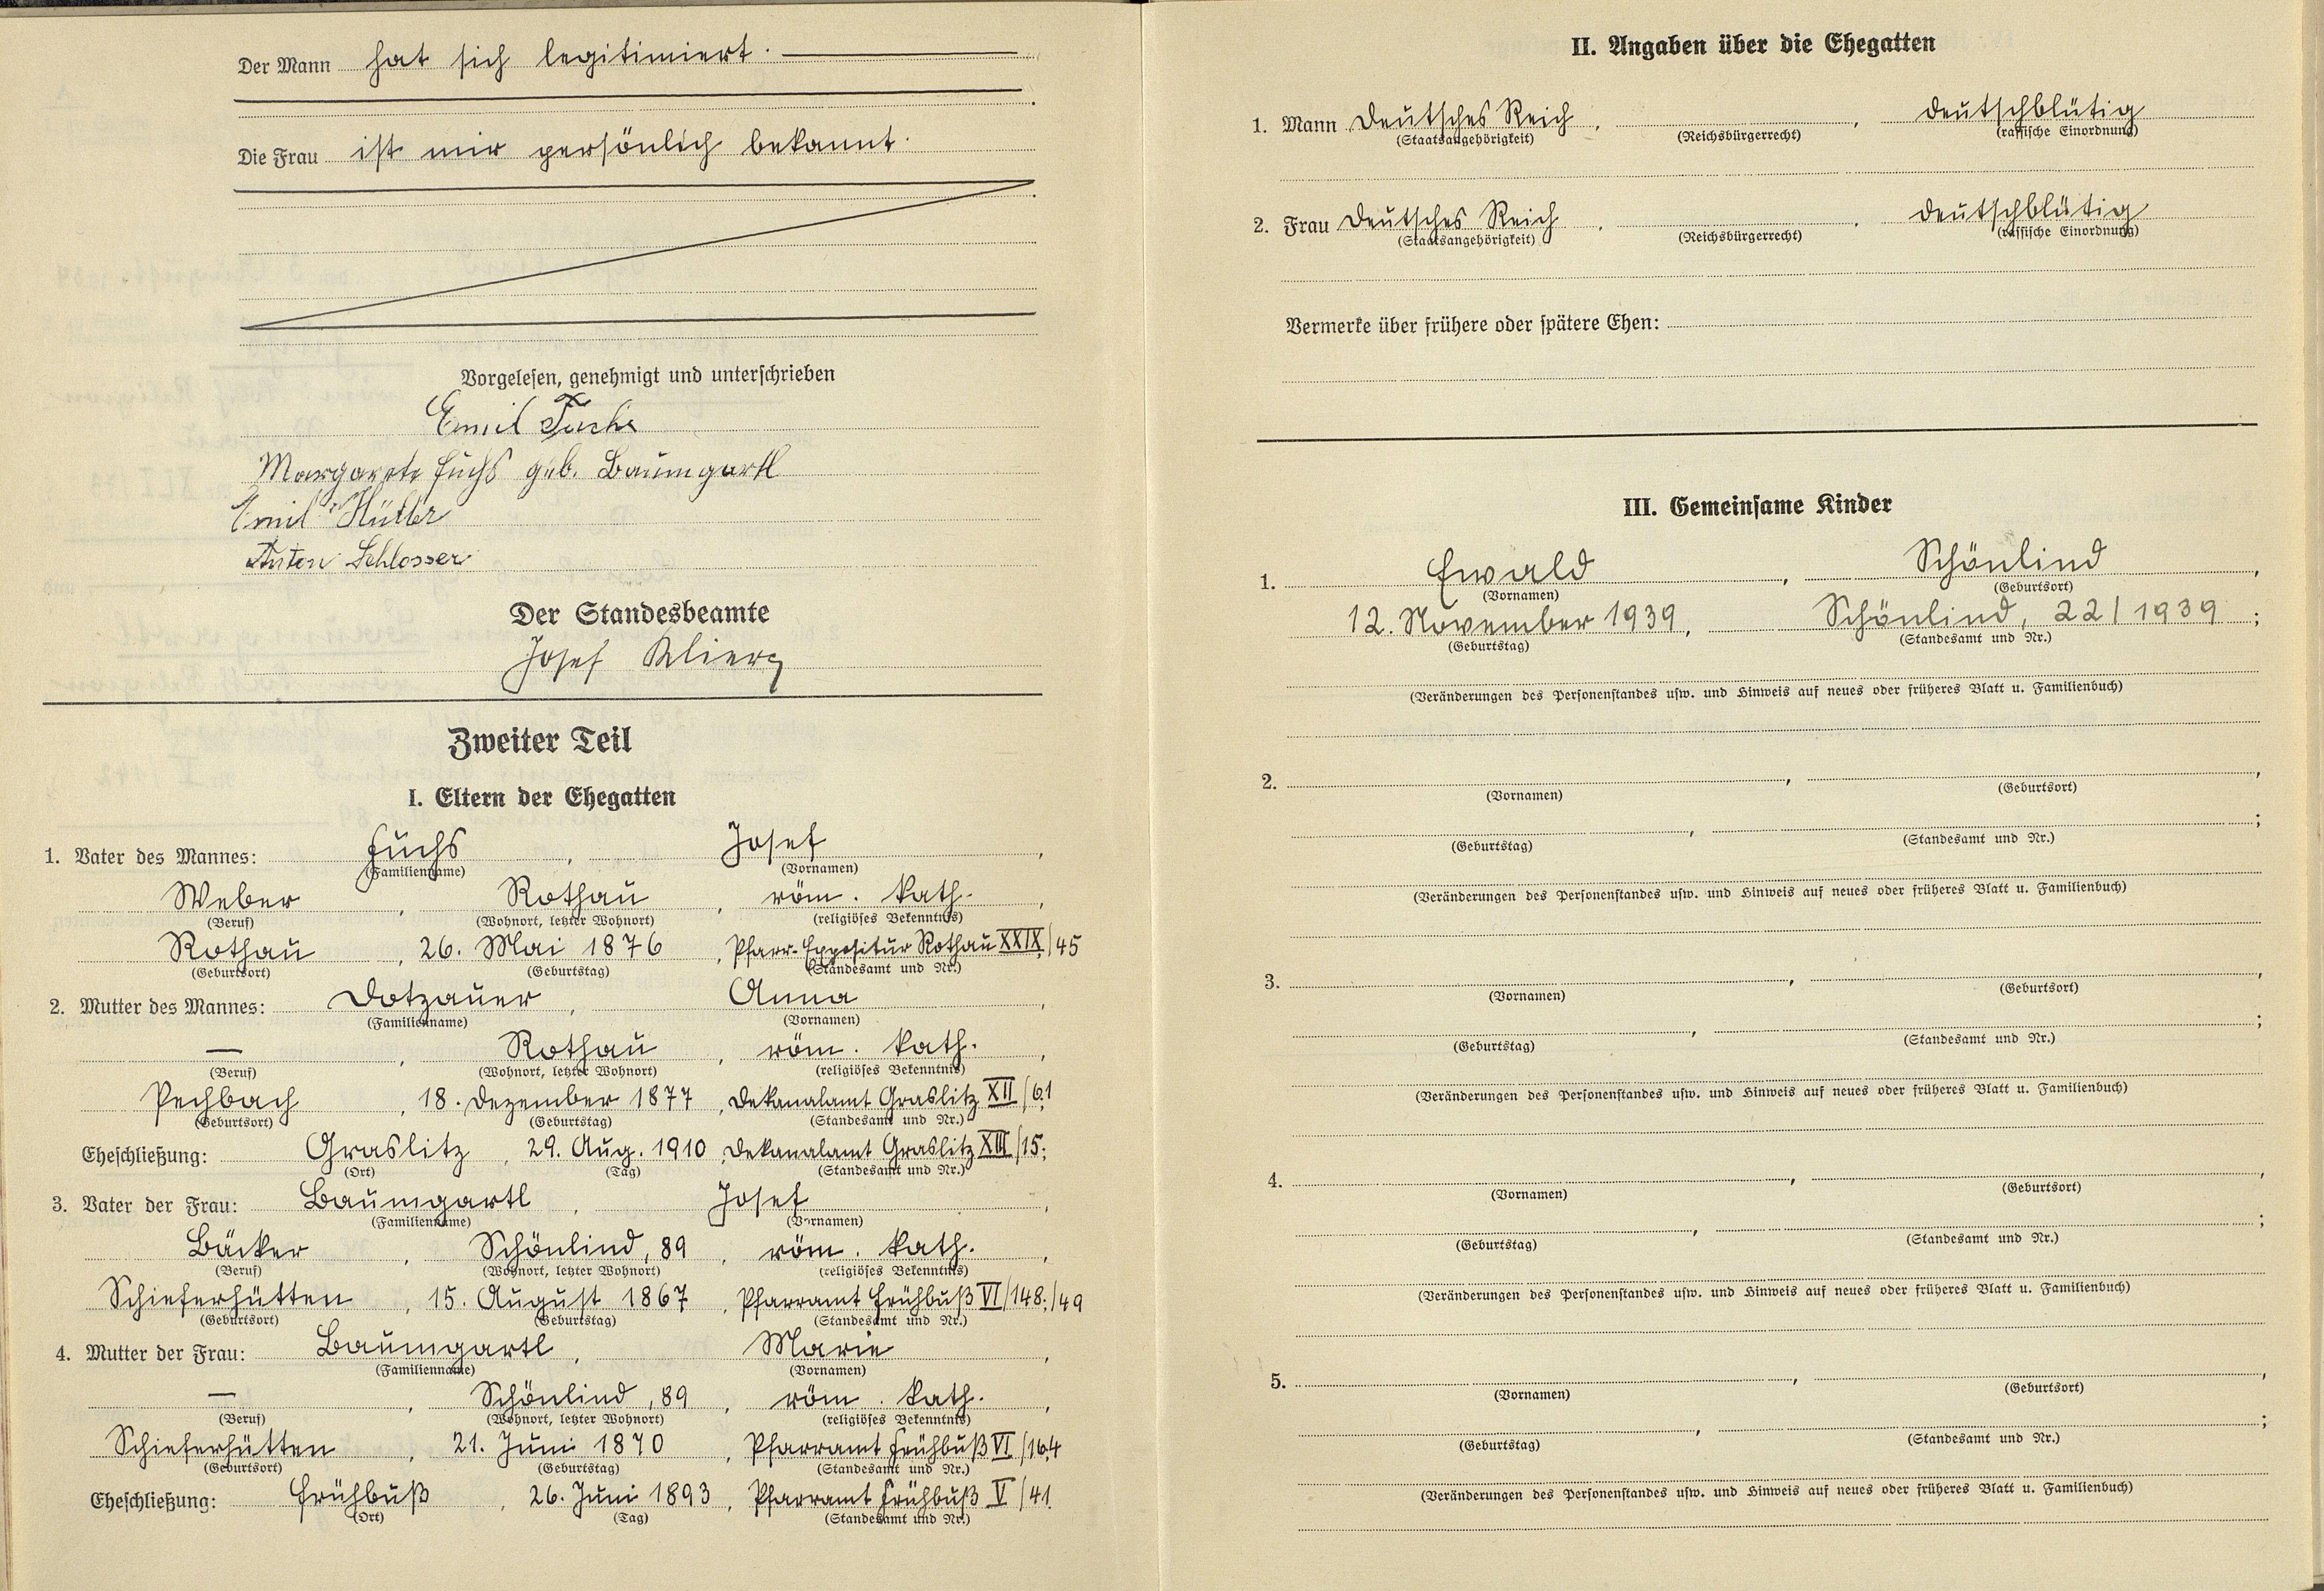 Der Mann hat sich legitimiert.
Die Frau ist mir persönlich bekannt.
Vorgelesen, genehmigt und unterschrieben
Emil Fuchs
Margarete Fuchs geb. Baumgartl
Emil Hüttler
Anton Schlosser
Der Standesbeamte
Josef Klier
Zweiter Teil
I. Eltern der Ehegatten
1. Vater des Mannes: Fuchs, Josef,
(Familienname) (Vornamen)
Weber, Rothau, röm. kath.,
(Beruf) (Wohnort, letzter Wohnort) (religiöses Bekenntnis)
Rothau, 26. Mai 1876, Pfarr-Expositur Rothau XXIX/45
(Geburtsort) (Geburtstag) (Standesamt und Nr.)
2. Mutter des Mannes: Dotzauer, Anna,
(Familienname) (Vornamen)
—, Rothau, röm. kath.,
(Beruf) (Wohnort, letzter Wohnort) (religiöses Bekenntnis)
Pechbach, 18. Dezember 1877, Dekanalamt Graslitz XII/61
(Geburtsort) (Geburtstag) (Standesamt und Nr.)
Eheschließung: Graslitz, 29. Aug. 1910, Dekanalamt Graslitz XIII/15;
(Ort) (Tag) (Standesamt und Nr.)
3. Vater der Frau: Baumgartl, Josef,
(Familienname) (Vornamen)
Bäcker, Schönlind, 89, röm. kath.,
(Beruf) (Wohnort, letzter Wohnort) (religiöses Bekenntnis)
Schieferhütten, 15. August 1867, Pfarramt Frühbuß VI/148;/49
(Geburtsort) (Geburtstag) (Standesamt und Nr.)
4. Mutter der Frau: Baumgartl, Marie,
(Familienname) (Vornamen)
—, Schönlind, 89, röm. kath.,
(Beruf) (Wohnort, letzter Wohnort) (religiöses Bekenntnis)
Schieferhütten, 21. Juni 1870, Pfarramt Frühbuß VI/164
(Geburtsort) (Geburtstag) (Standesamt und Nr.)
Eheschließung: Frühbuß, 26. Juni 1893, Pfarramt Frühbuß V/41
(Ort) (Tag) (Standesamt und Nr.)
II. Angaben über die Ehegatten
1. Mann Deutsches Reich, , deutschblütig
(Staatsangehörigkeit) (Reichsbürgerrecht) (rassische Einordnung)
2. Frau Deutsches Reich, , deutschblütig
(Staatsangehörigkeit) (Reichsbürgerrecht) (rassische Einordnung)
Vermerke über frühere oder spätere Ehen:
III. Gemeinsame Kinder
1. Ewald, Schönlind,
(Vornamen) (Geburtsort)
12. November 1939, Schönlind, 22/1939;
(Geburtstag) (Standesamt und Nr.)
(Veränderungen des Personenstandes usw. und Hinweis auf neues oder früheres Blatt u. Familienbuch)
2. , ,
(Vornamen) (Geburtsort)
, ;
(Geburtstag) (Standesamt und Nr.)
(Veränderungen des Personenstandes usw. und Hinweis auf neues oder früheres Blatt u. Familienbuch)
3. , ,
(Vornamen) (Geburtsort)
, ;
(Geburtstag) (Standesamt und Nr.)
(Veränderungen des Personenstandes usw. und Hinweis auf neues oder früheres Blatt u. Familienbuch)
4. , ,
(Vornamen) (Geburtsort)
, ;
(Geburtstag) (Standesamt und Nr.)
(Veränderungen des Personenstandes usw. und Hinweis auf neues oder früheres Blatt u. Familienbuch)
5. , ,
(Vornamen) (Geburtsort)
, ;
(Geburtstag) (Standesamt und Nr.)
(Veränderungen des Personenstandes usw. und Hinweis auf neues oder früheres Blatt u. Familienbuch)